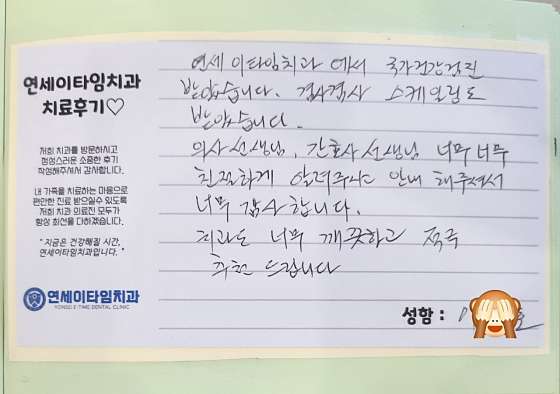 연세이타임치과
치료후기♡
저희 치과를 방문하시고
정성스러운 소중한 후기
작성해주셔서 감사합니다.
내 가족을 치료하는 마음으로
편안한 진료 받으실수 있도록
저희 치과 의료진 모두가
항상 최선을 다하겠습니다.
" 지금은 건강해질 시간,
연세이타임치과입니다. "
연세이타임치과
YONSEI E-TIME DENTAL CLINIC
연세 이타임치과 에서 국가건강검진
받았습니다. 겸사겸사 스케일링도
받았습니다.
의사선생님, 간호사선생님 너무너무
친절하게 알려주시고 안내 해주셔서
너무 감사합니다.
치과도 너무 깨끗하고 적극
추천 드립니다
성함 :